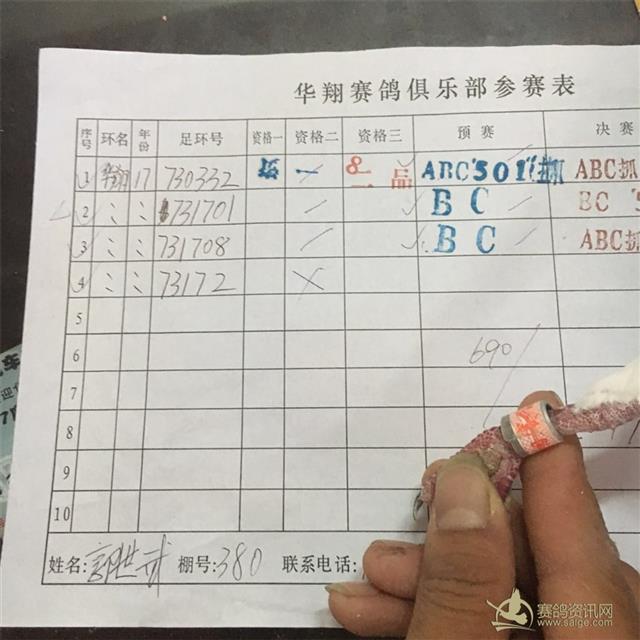 华翔赛鸽俱乐部参赛表
序号 环名 年份 足环号 资格一 资格二 资格三 预赛 决赛
1 华翔 17 730332 资 一 8 一品 ABC'3017抓 ABC抓
2 〃 〃 731701 / BC BC
3 〃 〃 731708 / BC ABC抓
4 〃 〃 73172 ×
5
6 690
7
8
9
10
姓名: 棚号:380 联系电话:
赛鸽资讯网
www.saige.com